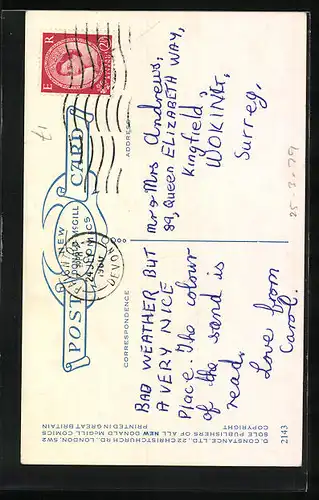 POST CARD
NEW
DONALD McGILL
COMICS
CORRESPONDENCE
ADDRESS
E R
DEVON
BAD WEATHER BUT
A VERY NICE
Place. The colour
of the sand is
read.
Love from
Carol.
Mr & Mrs Andrews,
89, Queen ELIZABETH WAY,
Kingfield,
WOKING,
Surrey.
25-3-79
£1
D. CONSTANCE, LTD., 22 CHRISTCHURCH RD., LONDON, SW2
SOLE PUBLISHERS OF ALL NEW DONALD McGILL COMICS
COPYRIGHT PRINTED IN GREAT BRITAIN
2143